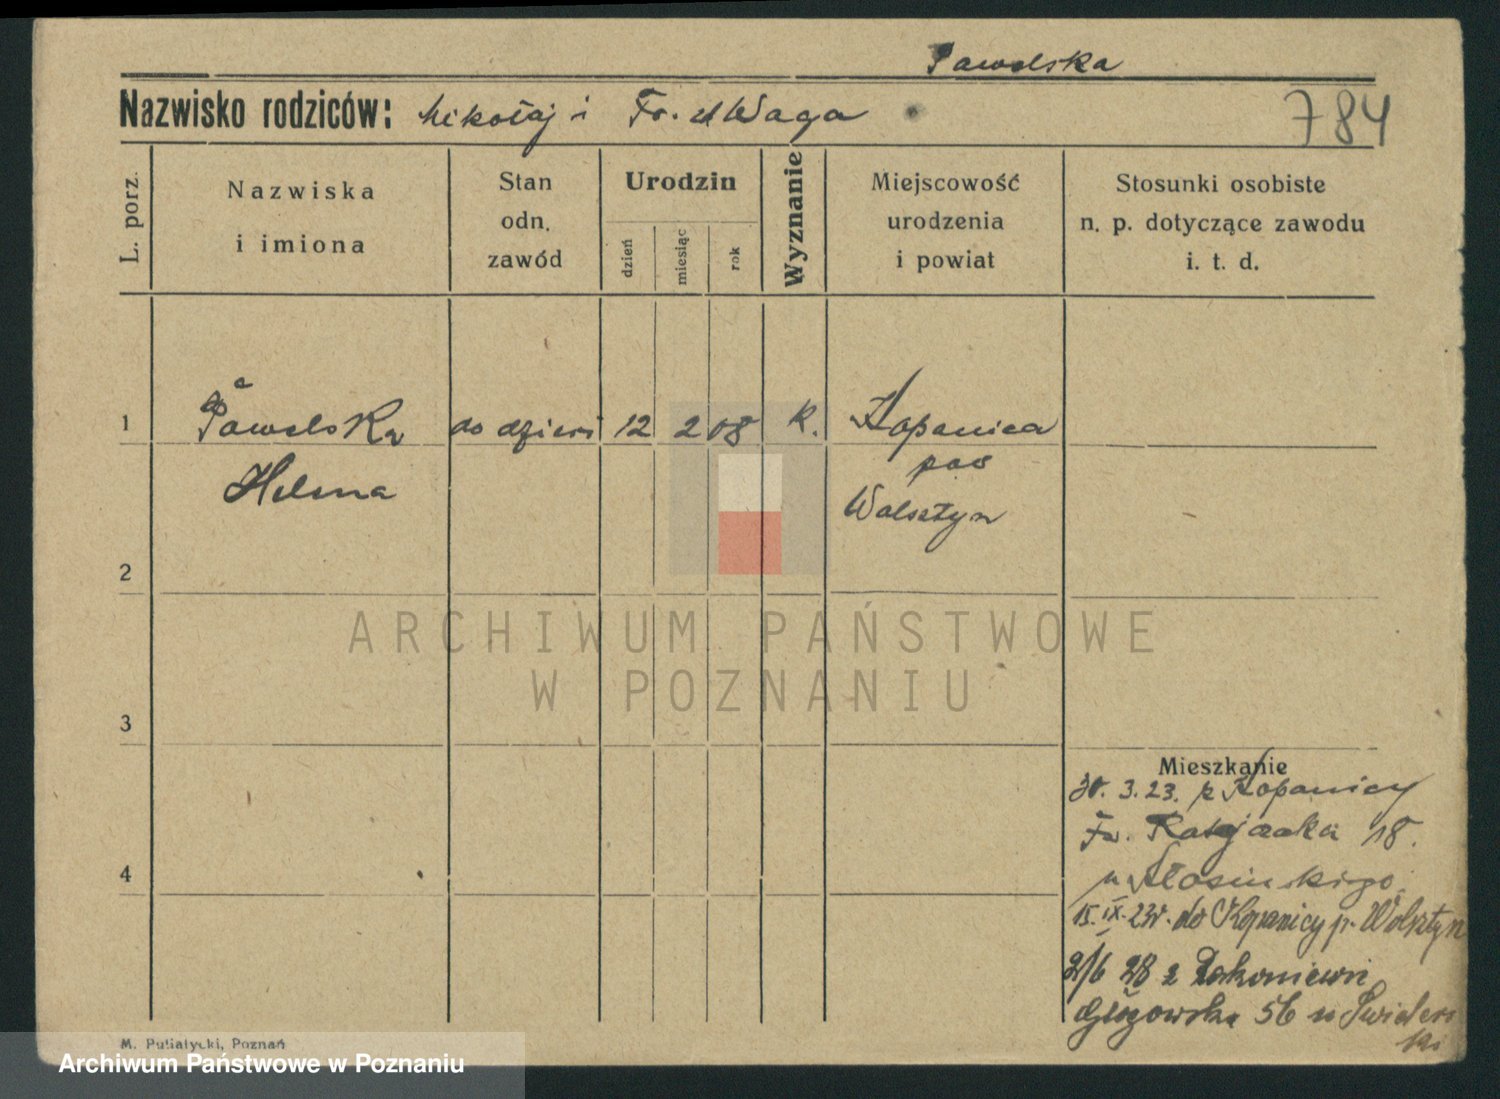 Pawelska
Nazwisko rodziców: Mikołaj i Fr. Waga
784
L. porz.
Nazwiska
i imiona
Stan
odn.
zawód
Urodzin
dzień
miesiąc
rok
Wyznanie
Miejscowość
urodzenia
i powiat
Stosunki osobiste
n. p. dotyczące zawodu
i. t. d.
1
Pawelska
Helena
do dzieci
12
2
08
k.
Kopanica
pow
Wolsztyn
2
3
4
Mieszkanie
30. 3. 23. z Kopanicy
Fr. Ratajczaka 18.
u
15. IX. 23r. do Kopanicy p. Wolsztyn
2/6 28 z
56 u Świders
ki
M. Putiatycki, Poznań
ARCHIWUM PAŃSTWOWE
W POZNANIU
Archiwum Państwowe w Poznaniu